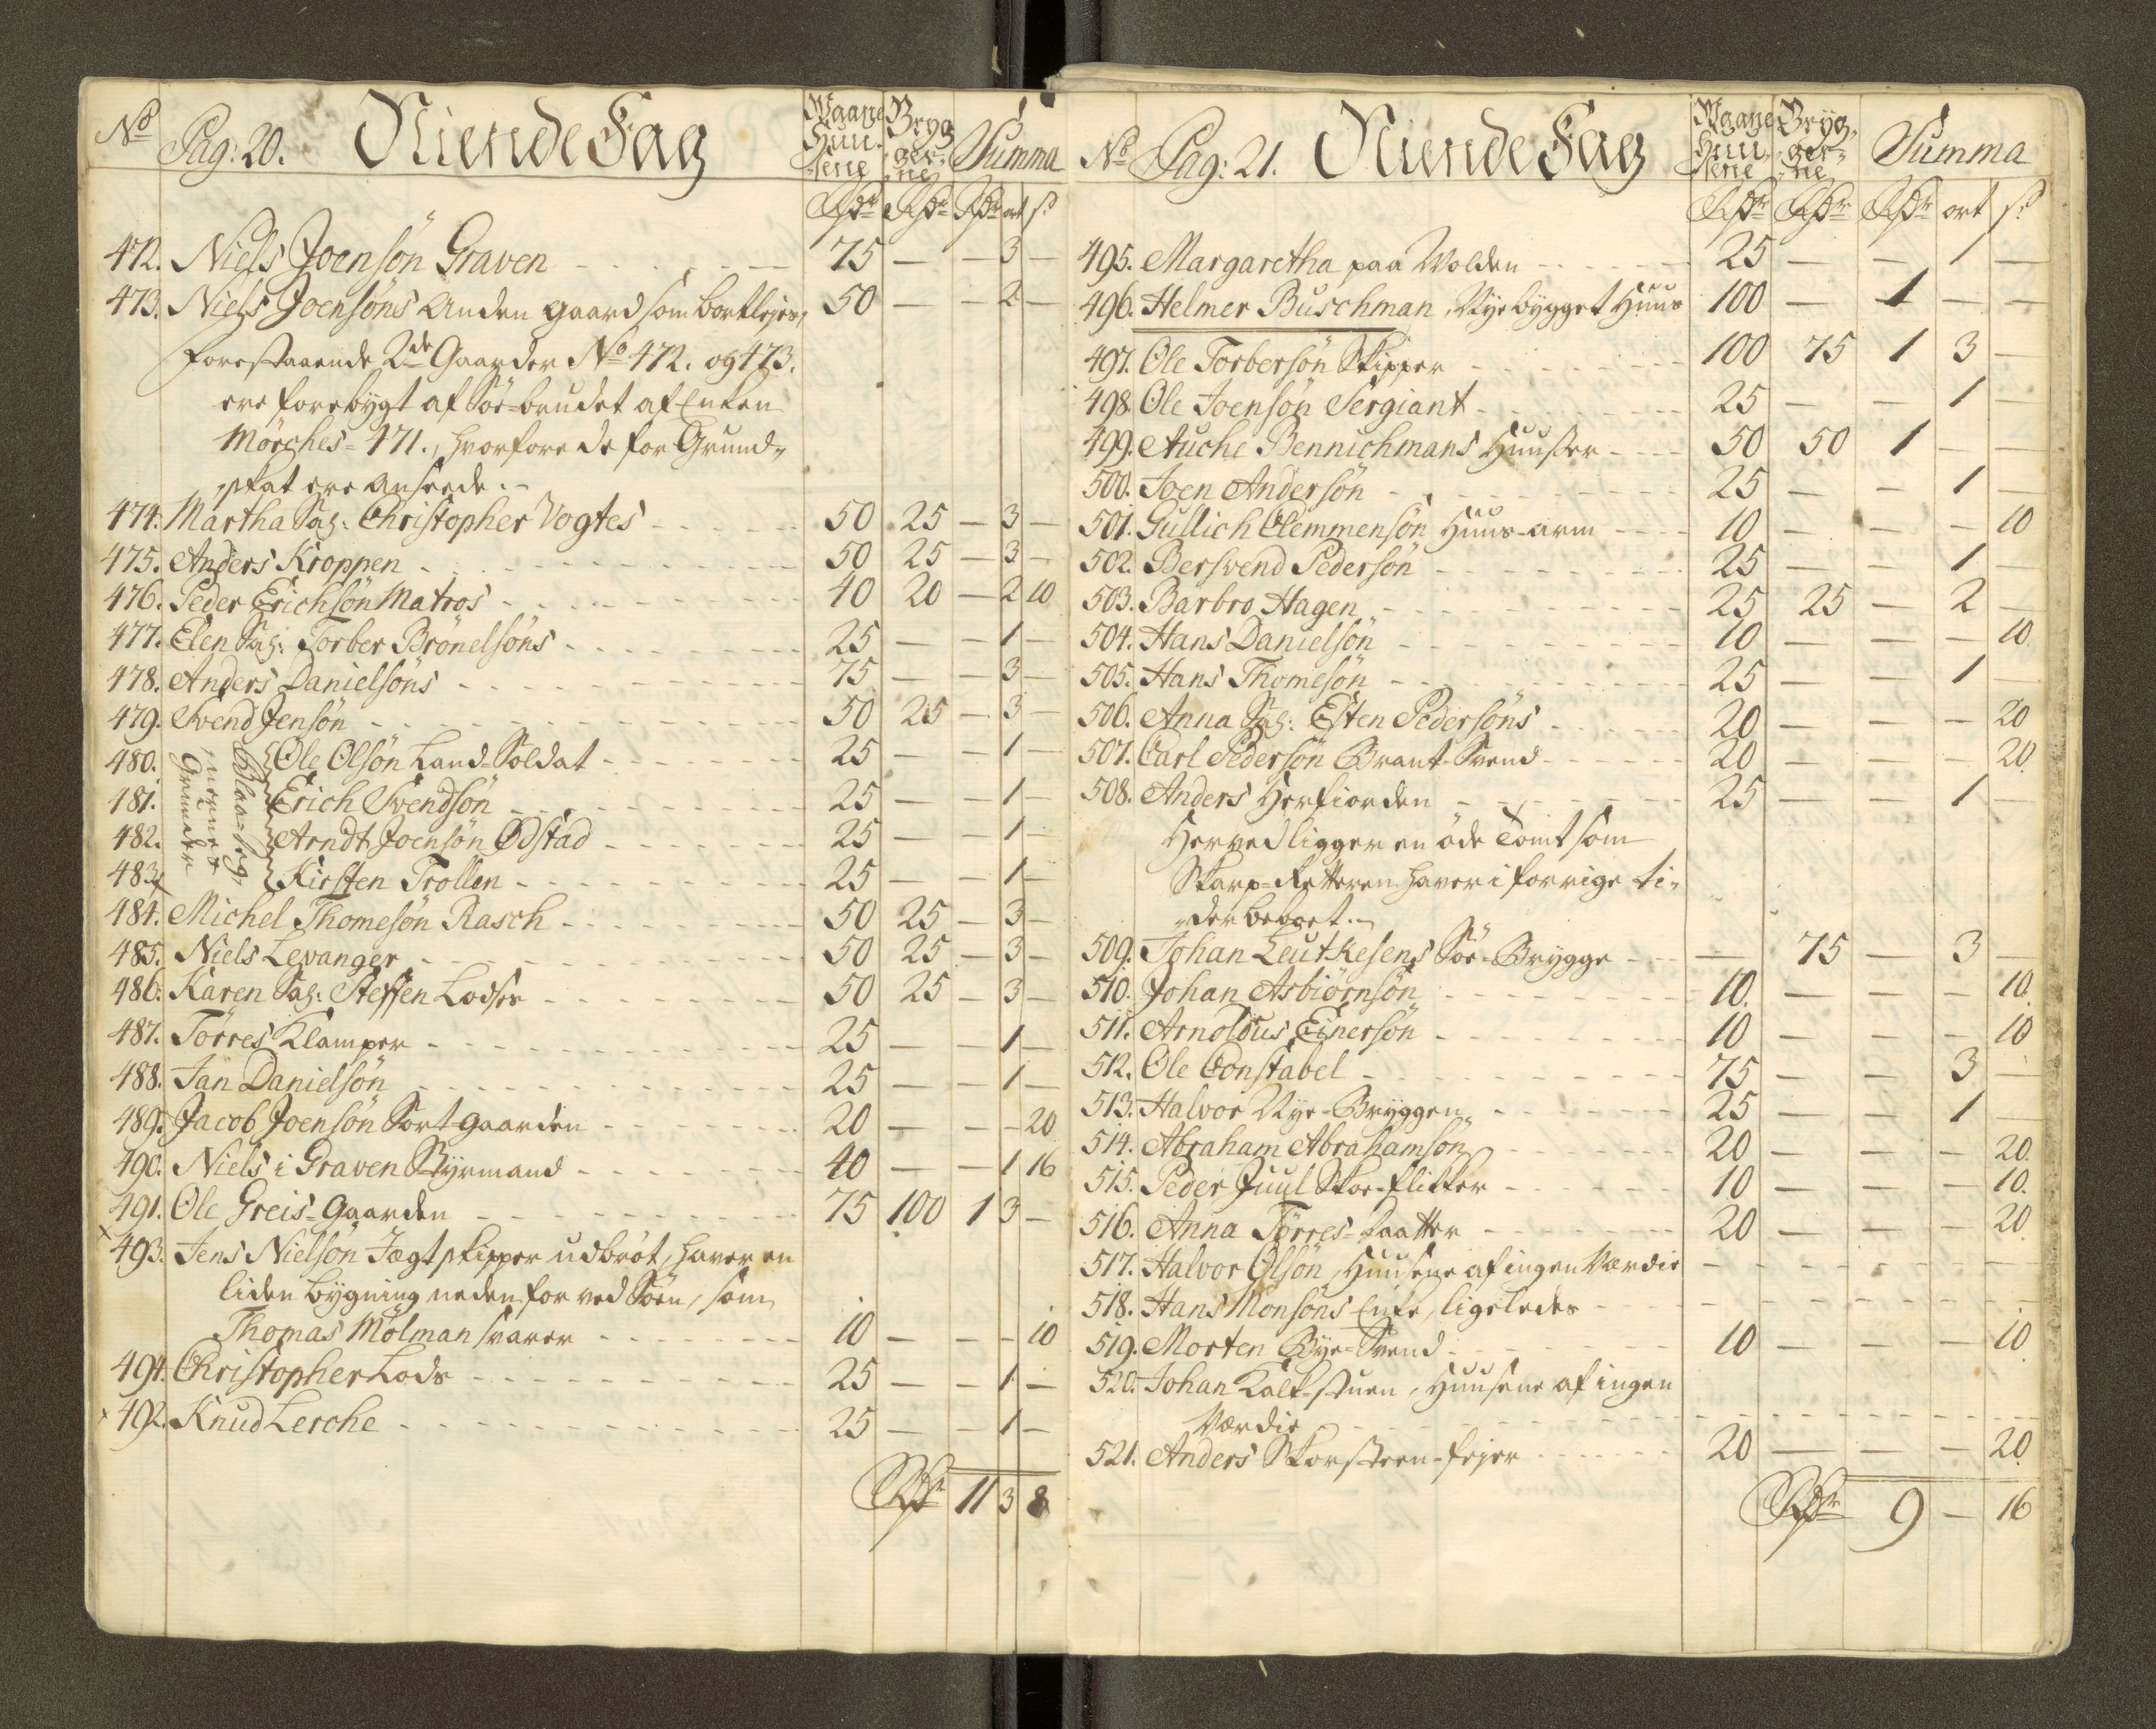 No Pag: 20. Niende Fag Waane Huu- sene Bryg ger- ne Summa
Rdr Rdr Rdr ort s:
472. Niels Joensön Graven 75 — — 3 —
473. Niels Joensöns Anden gaard som bortlejes, 50 — — 2 —
forestaaende 2de Gaarder No 472. og 473.
ere forebygt af Söe-brudet af Enken
Mörches = 471., hvorfore de for Grund-
skat ere anseede.
474. Martha Sal: Christopher Vogtes 50 25 — 3 —
475. Anders Kroppen 50 25 — 3 —
476. Peder Erichsön Matros 40 20 — 2 10
477. Elen Sal: Torber Brönelsöns 25 — — 1 —
478. Anders Danielsöns 75 — — 3 —
479. Svend Jensön 50 25 — 3 —
480. Ole Olsön Land-Soldat 25 — — 1 —
481. Erich Svendsön 25 — — 1 —
482. Arndt Joensön Ödstad 25 — — 1 —
483. Kirsten Trollen 25 — — 1 —
Grunder
484. Michel Thomesön Rasch 50 25 — 3 —
485. Niels Levanger 50 25 — 3 —
486. Karen Sal: Steffen Lodses 50 25 — 3 —
487. Törres Klamper 25 — — 1 —
488. Jan Danielsön 25 — — 1 —
489. Jacob Joensön Sort-gaarden 20 — — — 20
490. Niels i Graven Styrmand 40 — — 1 16
491. Ole Greis-Gaarden 75 100 1 3 —
x 493. Jens Nielsön Jægt skipper udbröt, haver en
liden bygning neden for ved Söen, som
Thomas Mölman svarer 10 — — — 10
494. Christopher Lods 25 — — 1 —
x 492. Knud Lerche 25 — — 1 —
Rdr 11 3 8
No Pag: 21. Niende Fag Waane Huu- sene Bryg- ger- ne Summa
Rdr Rdr Rdr ort s:
495. Margaretha paa Wolden 25 — — 1 —
496. Helmer Buschman, Nye bygget Huus 100 — 1 — —
497. Ole Torbersön Skipper 100 75 1 3 —
498. Ole Joensön Sergiant 25 — — 1 —
499. Auche Bennichmans Huuser 50 50 1 — —
500. Joen Andersön 25 — — 1 —
501. Gullich Clemmensön Huus-arm 10 — — — 10
502. Bersvend Pedersön 25 — — 1 —
503. Barbro Hagen 25 25 — 2 —
504. Hans Danielsön 10 — — — 10
505. Hans Thomesön 25 — — 1 —
506. Anna Sal: Esten Pedersöns 20 — — — 20
507. Carl Pedersön Brant-Svend 20 — — — 20.
508. Anders Herfiorden 25 — — 1 —
Herved ligger en öde Tomt som
Skarp-Retteren haver i forrige ti-
der beboet.
509. Johan Leutkesens Söe-Brygge — 75 — 3 —
510. Johan Asbiörnsön 10. — — — 10.
511. Arnoldus Einersön 10 — — — 10
512. Ole Constabel 75 — — 3 —
513. Halvor Nye-Bryggen 25 — — 1 —
514. Abraham Abrahamsön 20 — — — 20.
515. Peder Juul Skoe-flikker 10 — — — 10.
516. Anna Törres-Daatter 20 — — — 20
517. Halvor Olsön, Huusene af ingen Værdie —
518. Hans Monsöns Enke, ligeledes —
519. Morten Bye-Svend 10 — — — 10
520. Johan Kalk-stuen, Huusene af ingen
Værdie
521. Anders Skorsteen-fejer 20 — — — 20.
Rdr 9 — 16